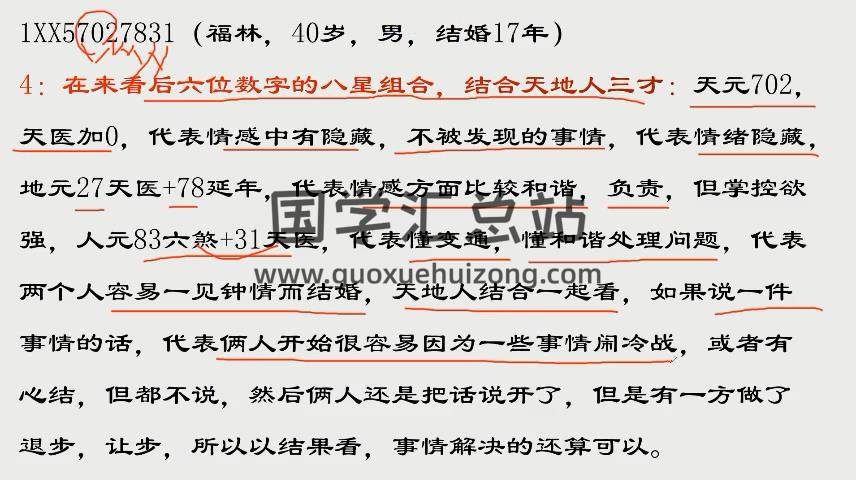 1XX57027831（福林，40岁，男，结婚17年）
4：在来看后六位数字的八星组合，结合天地人三才：天元702，
天医加0，代表情感中有隐藏，不被发现的事情，代表情绪隐藏，
地元27天医+78延年，代表情感方面比较和谐，负责，但掌控欲
国学汇总站
强，人元83六煞+31天医，代表懂变通，懂和谐处理问题，代表
www.guoxuehuizong.com
两个人容易一见钟情而结婚，天地人结合一起看，如果说一件
事情的话，代表俩人开始很容易因为一些事情闹冷战，或者有
心结，但都不说，然后俩人还是把话说开了，但是有一方做了
退步，让步，所以以结果看，事情解决的还算可以。